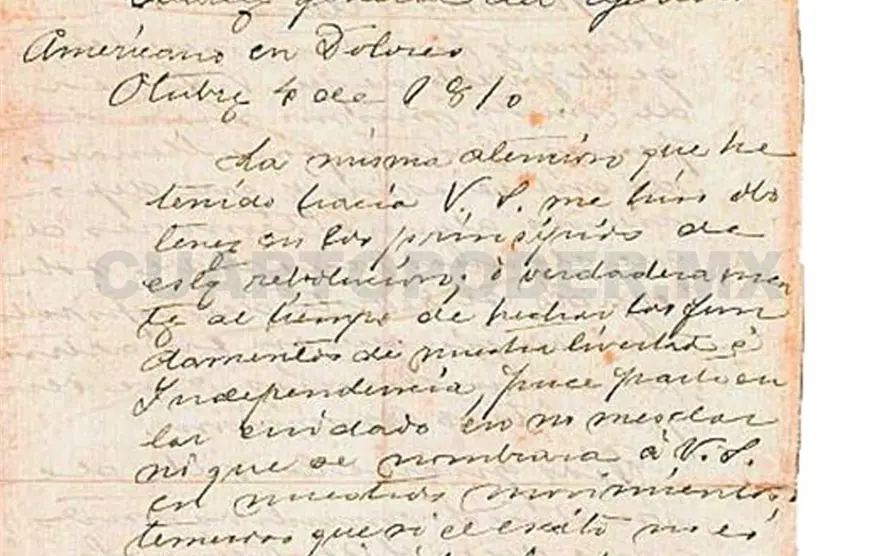 general del
Americano en Dolores
Otubre 4 de 1810
La misma atencion que he
tenido hacia V. S. me hiso obs
tener en los prinsipios de
esta rebolución; ó verdaderamen
te al tiempo de hechar los fun
damentos de nuestra livertad é
Independencia, puce particu
lar cuidado en no mesclar
ni que se nombrara á V. S.
en nuestros movimientos,
temeroso que si el exito no es
CUARTOPODER.MX